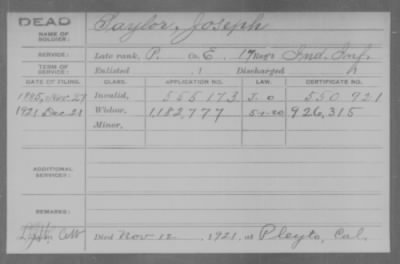 DEAD
NAME OF SOLDIER: Taylor, Joseph
SERVICE: Late rank, P. Co. E, 17 Reg't Ind. Inf.
TERM OF SERVICE: Enlisted , 1 Discharged , 1
DATE OF FILING. CLASS. APPLICATION NO. CERTIFICATE NO.
Nov. 27 Invalid, 555173 550.921
1921 Dec 21 Widow, 1,182,777 926,315
Minor,
ADDITIONAL SERVICES:
REMARKS:
Died Nov 12, 1921, at Pleyto, Cal.